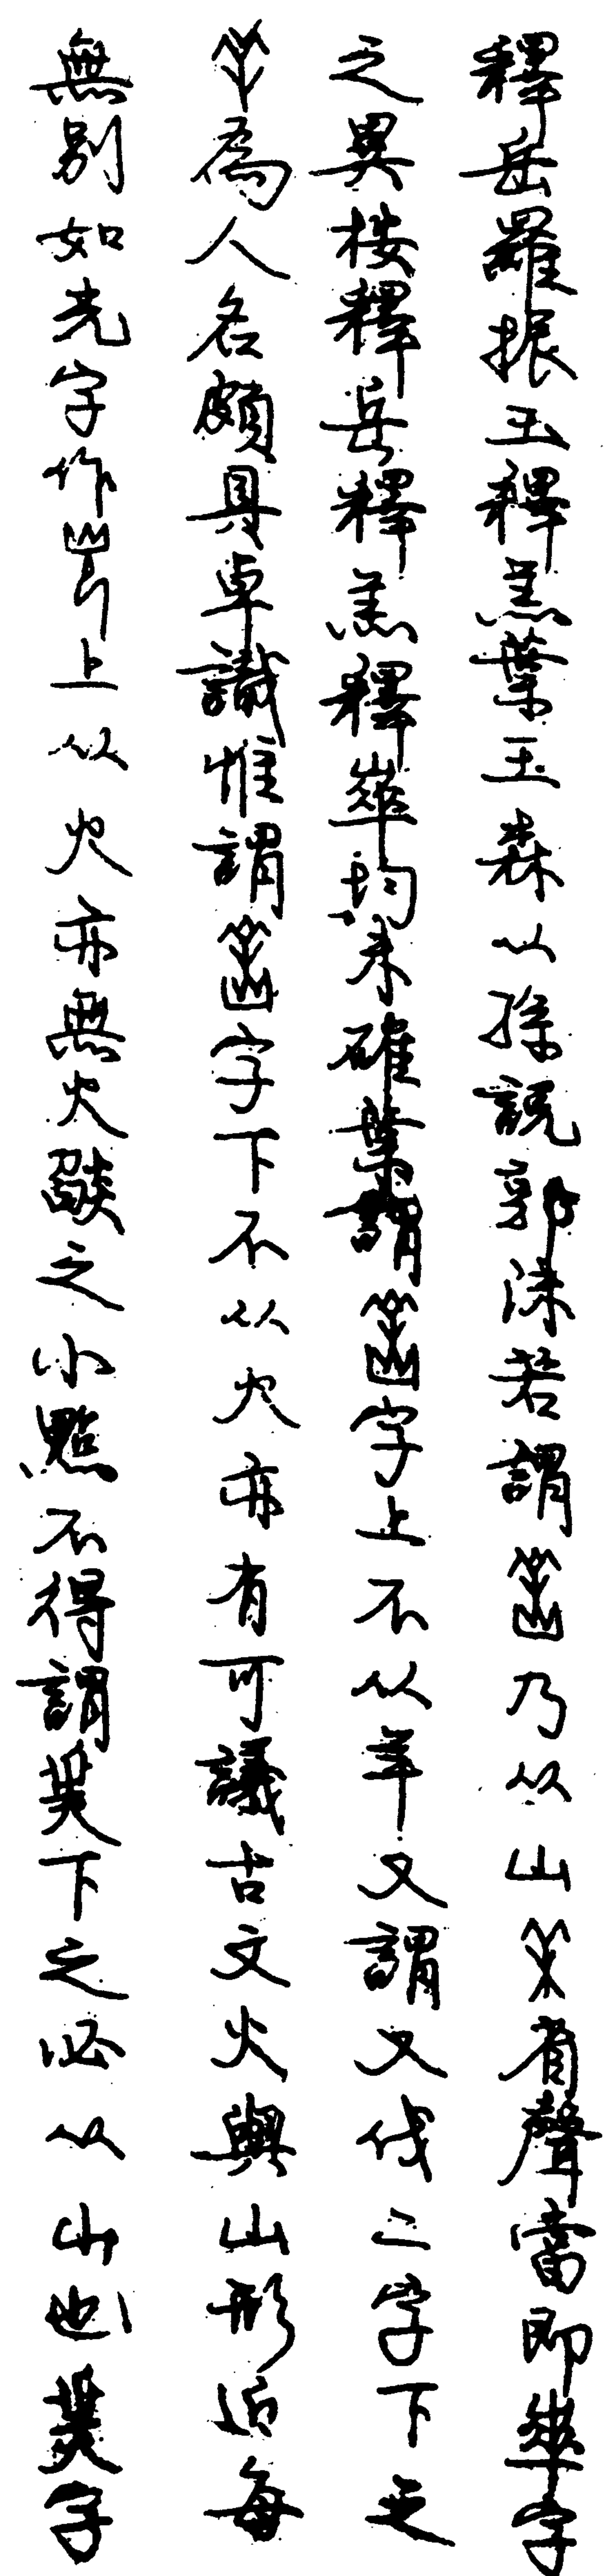 釋岳羅振玉釋羔葉玉森以孫說郭沫若謂乃从山省聲當即崋字
之異按釋岳釋羔釋崋均未確葉謂字上不从羊又謂又伐二字下之
為人名頗具卓識惟謂字下不从火亦有可議古文火與山形近每
無別如光字作上从火亦無火燄之小點不得謂下之必从山也字